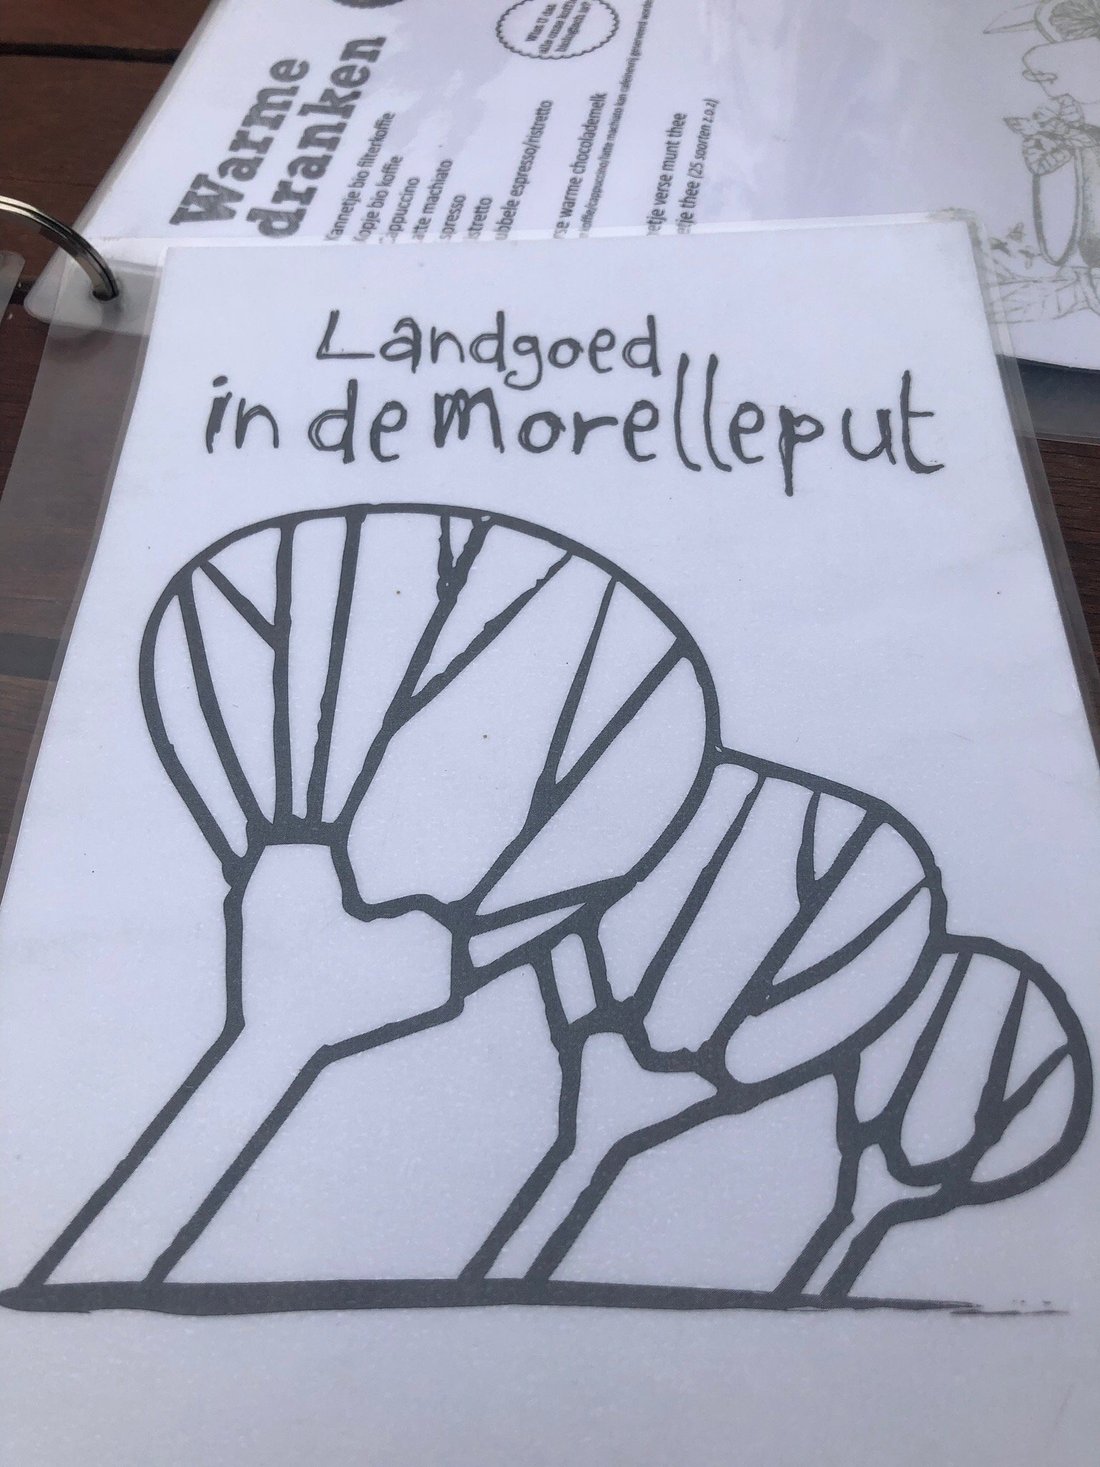 Landgoed
in de morelleput
Warme
dranken
Kannetje bio filterkoffie
Kopje bio koffie
Cappuccino
latte machiato
espresso
ristretto
dubbele espresso/ristretto
warme chocolademelk
verse munt thee
thee (25 soorten z.o.z)